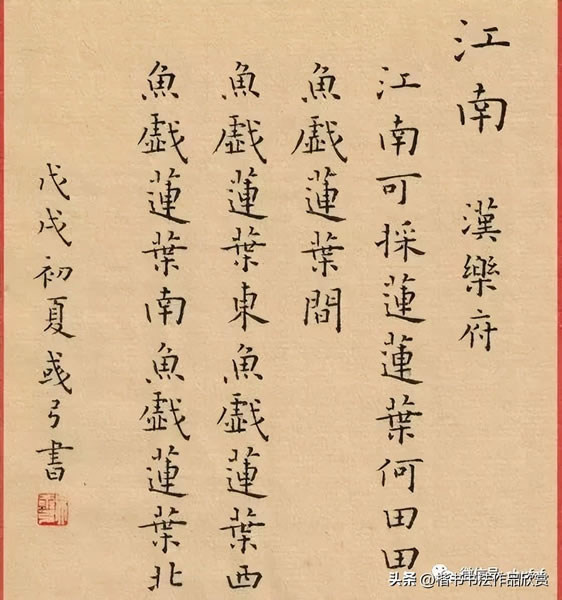 江南 漢樂府
江南可採蓮蓮葉何田田
魚戲蓮葉間
魚戲蓮葉東魚戲蓮葉西
魚戲蓮葉南魚戲蓮葉北
戊戌初夏彧弓書
头条 @楷书书法作品欣赏